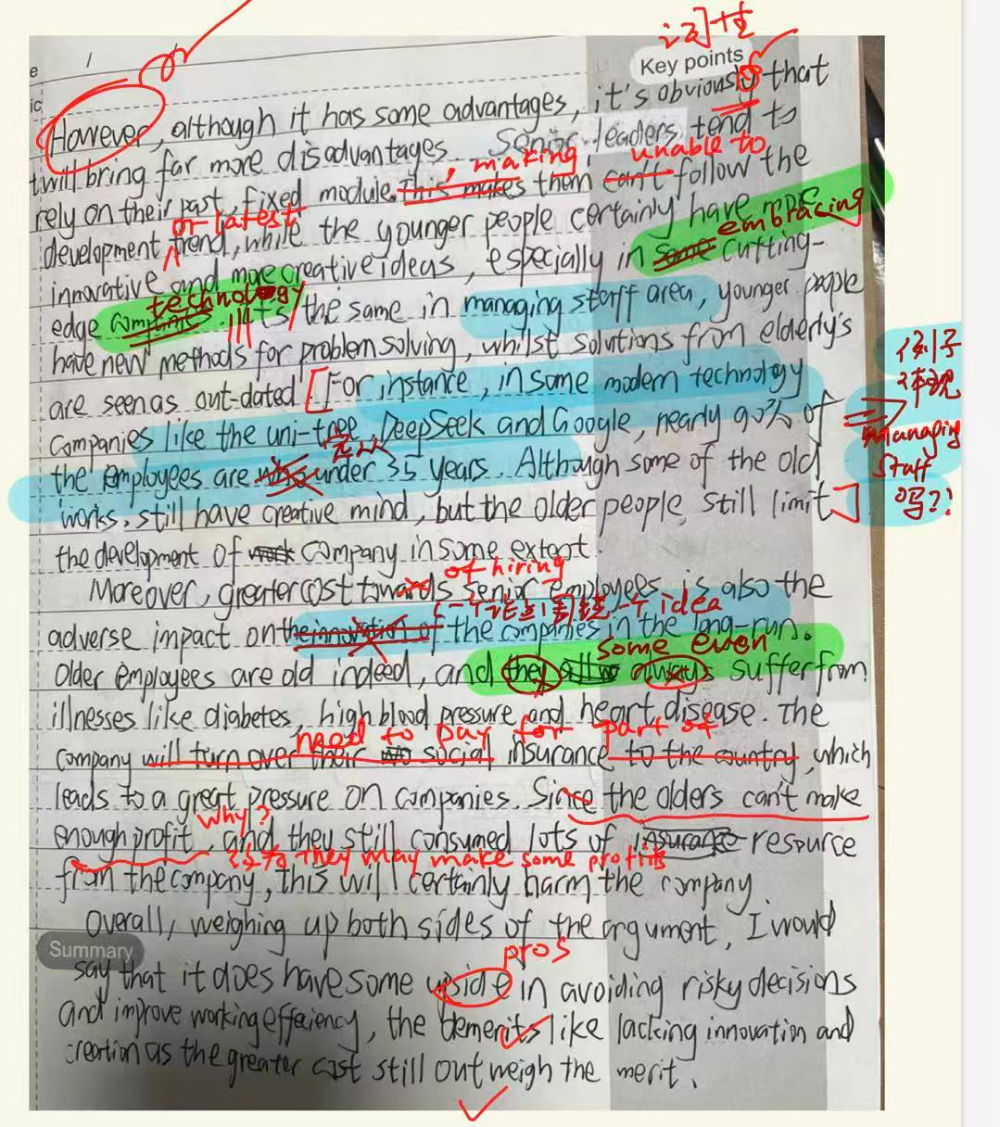 词性
Key points
e
ic
However, although it has some advantages, it's obviously that
twill bring far more disadvantages. Senior leaders tend to
, making unable to
rely on their past, fixed module. this makes them can't follow the
or latest
development trend, while the younger people certainly have more
embracing
innovative and more creative ideas, especially in some cutting-
technology
edge companies. It's the same in managing staff area, younger people
have new methods for problem solving, whilst solutions from elderly's
are seen as out-dated. [For instance, in some modern technology
companies like the uni-tree, DeepSeek and Google, nearly 90% of
the employees are under 35 years. Although some of the old
works, still have creative mind, but the older people, still limit]
例子
体现
Managing
staff
吗?!
the development of company in some extent.
of hiring
Moreover, greater cost towards senior employees is also the
一个论点围绕一个idea
adverse impact on the innovation of the companies in the long-run.
some even
Older employees are old indeed, and they all always suffer from
illnesses like diabetes, high blood pressure and heart disease. The
need to pay for part of
company will turn over their social insurance to the country, which
leads to a great pressure on companies. Since the olders can't make
why?
enough profit, and they still consumed lots of insurance resource
they may make some profits
from the company, this will certainly harm the company
Overall, weighing up both sides of the argument, I would
Summary
pros
say that it does have some upside in avoiding risky decisions
and improve working effeciency, the demerits like lacking innovation and
creation as the greater cost still outweigh the merit.